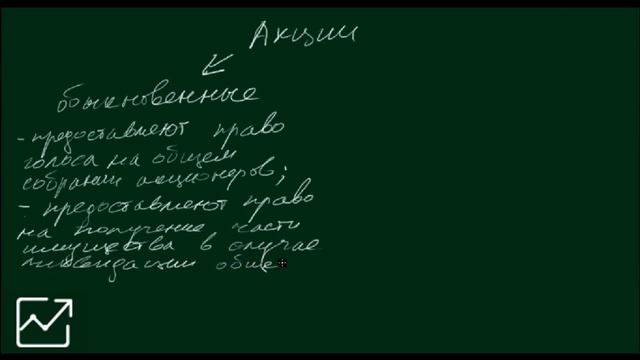 Акции
обыкновенные
- предоставляют право
голоса на общем
собрании акционеров;
- предоставляют право
на получение части
имущества в случае
ликвидации обще